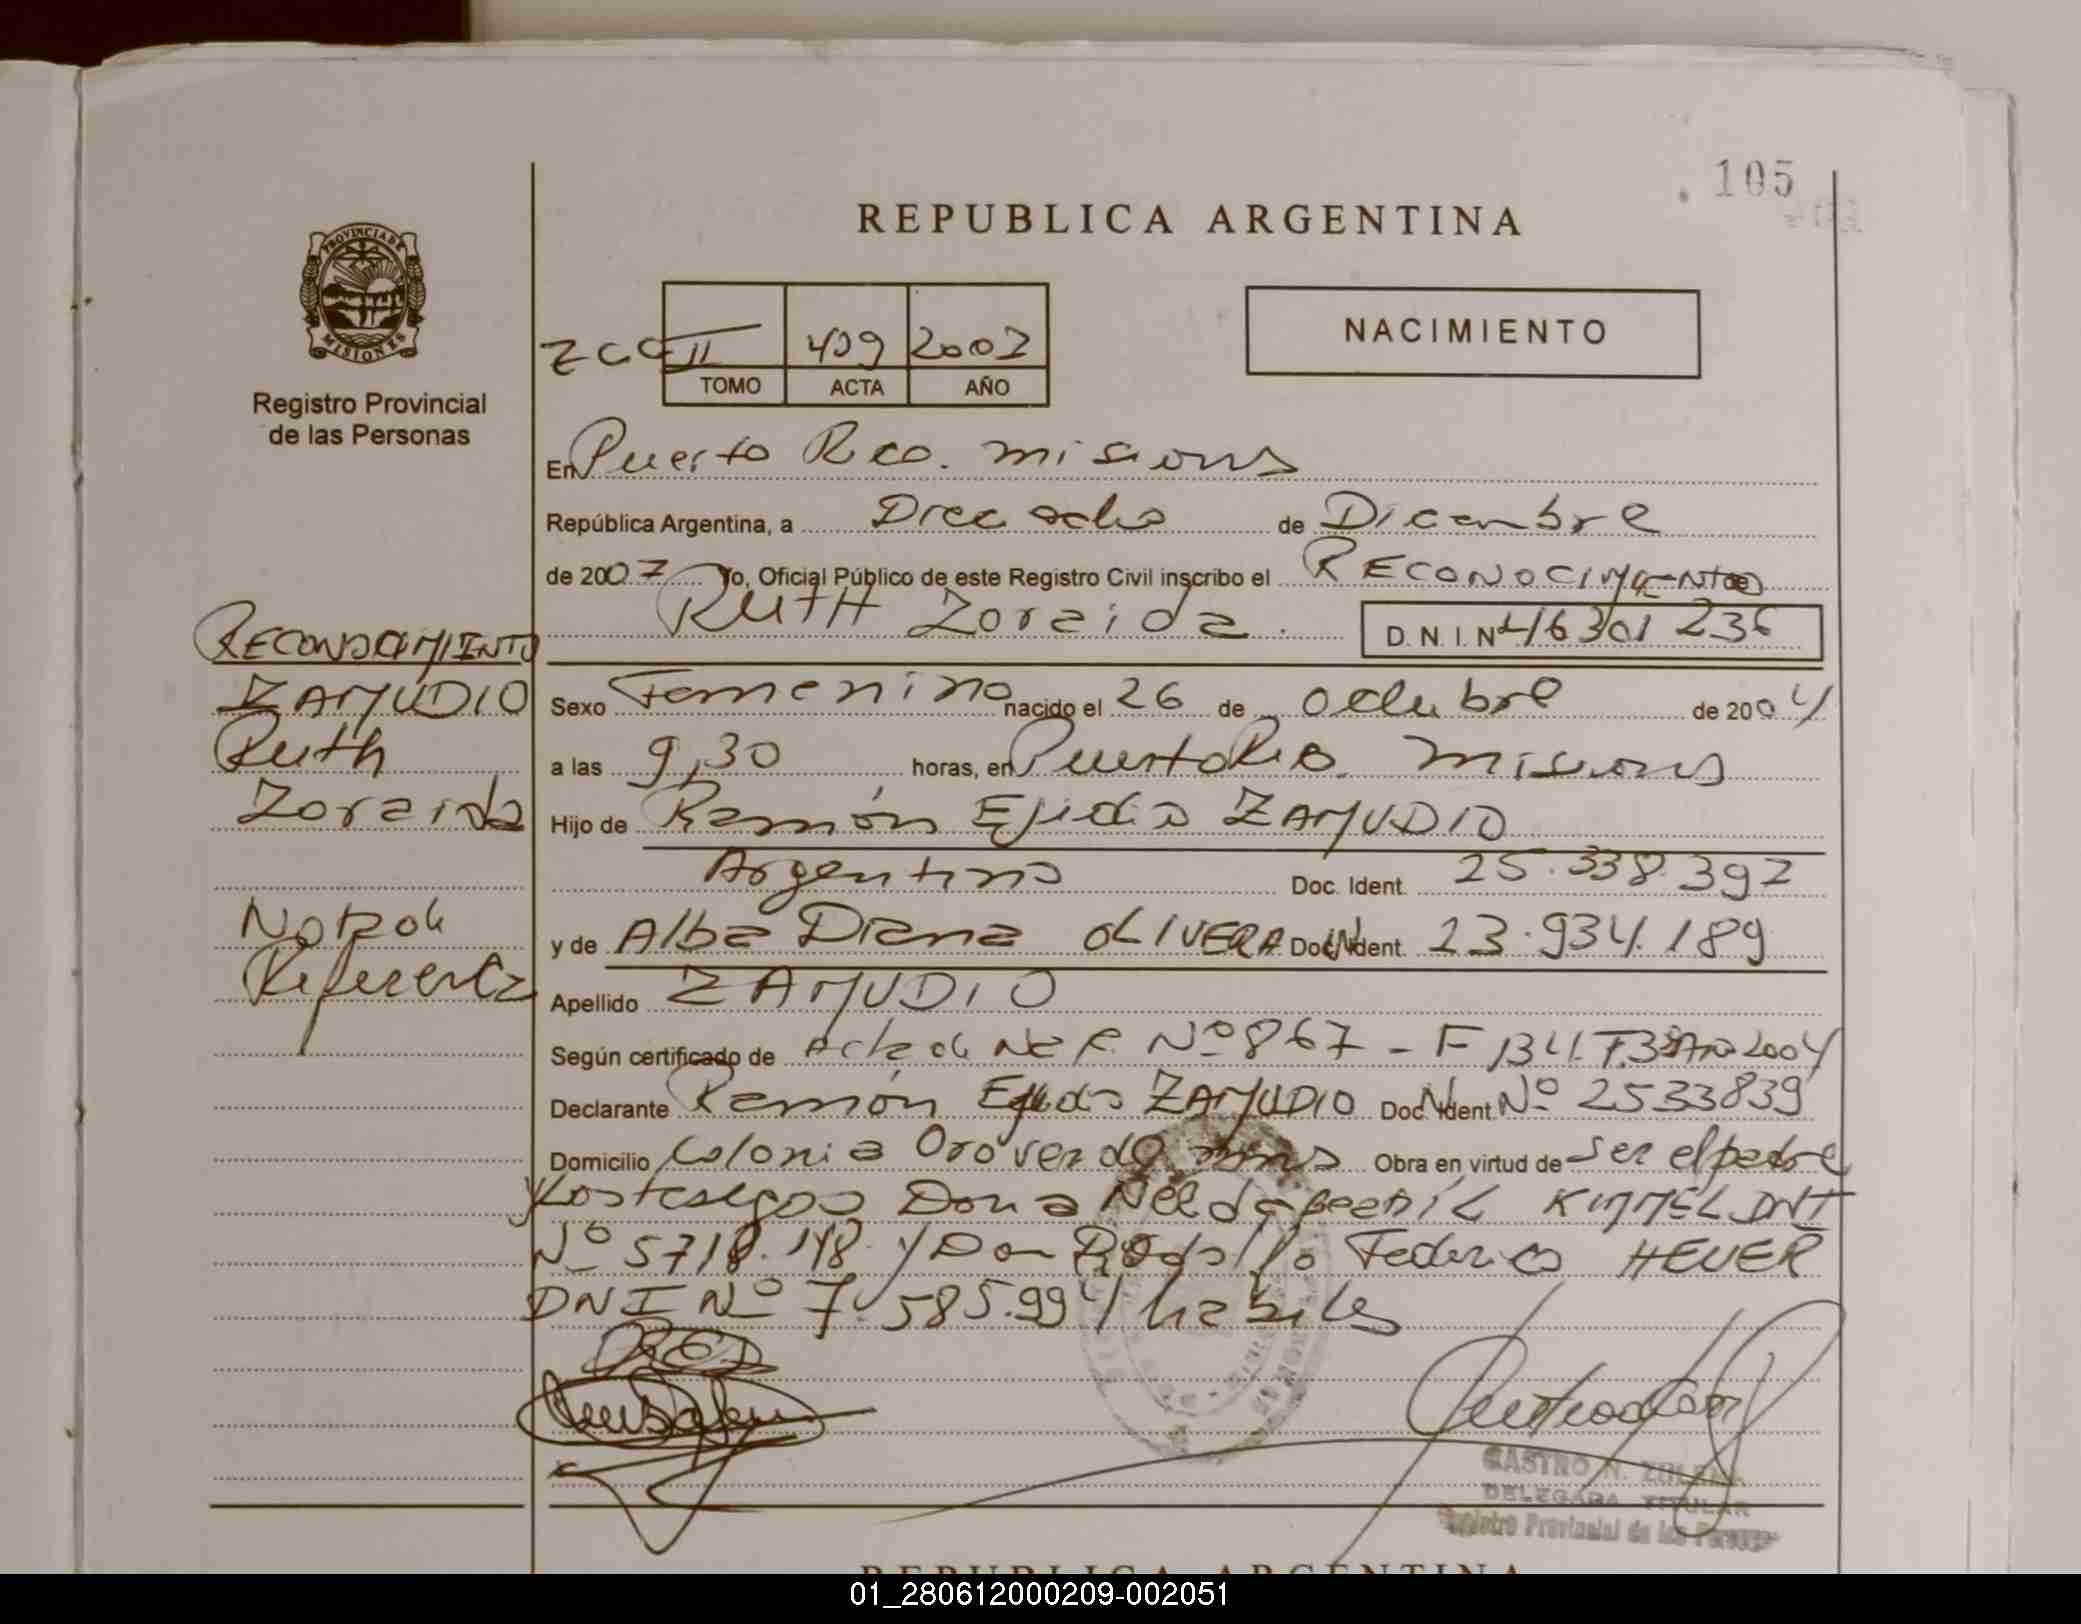 105
REPUBLICA ARGENTINA
PROVINCIA DE
MISIONES
Registro Provincial
de las Personas
NACIMIENTO
II 409 2007
TOMO ACTA AÑO
En Puerto Rco. Misions
República Argentina, a Diec ocho de Dicembre
de 2007 Yo, Oficial Público de este Registro Civil inscribo el RECONOCIMIENTO
RUTH Zoraida. D. N. I. Nº 46301 236
RECONOCIMIENTO
ZAMUDIO
Ruth
Zoraida
Nota de
Referencia
Sexo Femenino nacido el 26 de octubre de 2004
a las 9,30 horas, en Puerto Rico. Misions
Hijo de Ramón Ejidio ZAMUDIO
Argentino Doc. Ident. 25.338.397
y de Alba Diana OLIVERA Doc. Ident. 23.934.189
Apellido ZAMUDIO
Según certificado de Acta de Nac. Nº 867 - F 134. T.3º Año 2004
Declarante Ramón Ejidio ZAMUDIO Doc. Ident. Nº 2533839
Domicilio Colonia Oro verde Mnes Obra en virtud de ser el padre
y los testigos Dona Nelda KIMMEL DNI
Nº 5718.148. y Don Rodolfo Federico HEUER
DNI Nº 7.585.994 habiles
CASTRO N. ZULEMA
DELEGADA TITULAR
Registro Provincial de las Personas
REPUBLICA ARGENTINA
01_280612000209-002051